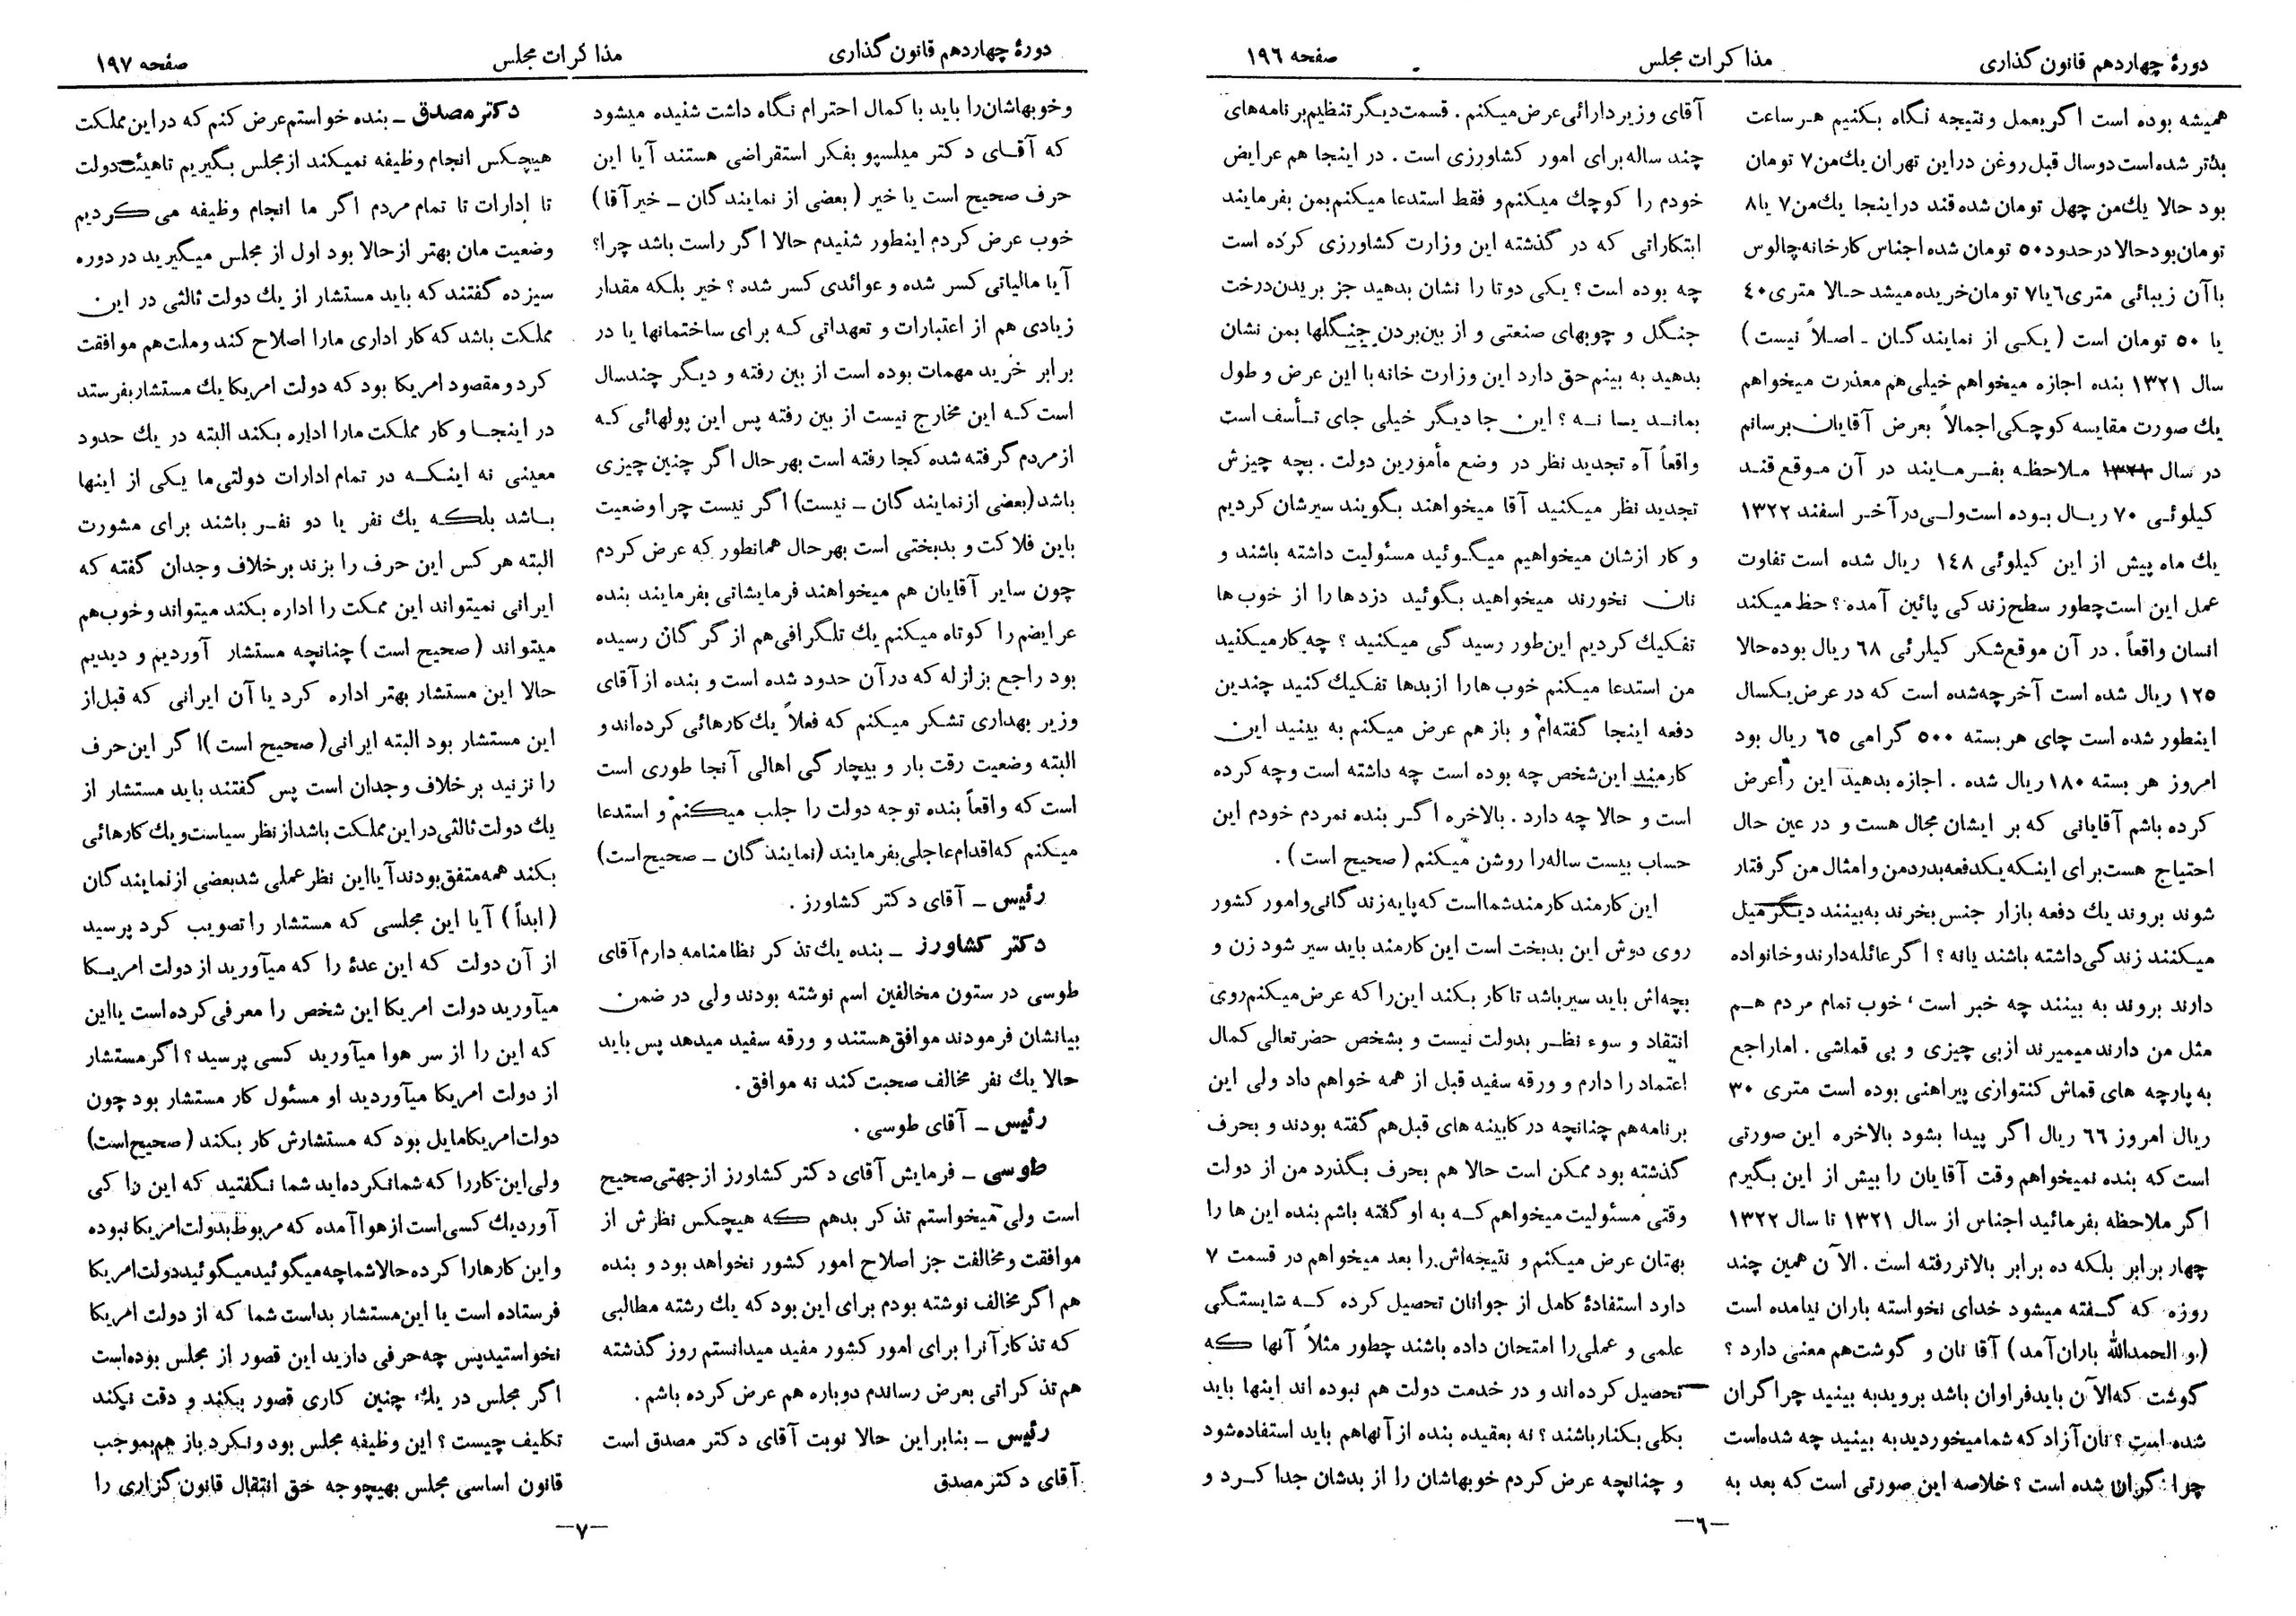 دورهٔ چهاردهم قانون گذاری
مذاکرات مجلس
صفحه ۱۹۶
همیشه بوده است اگر بعمل و نتیجه نگاه بکنیم هر ساعت
بدتر شده است دو سال قبل روغن در این تهران یك من ۷ تومان
بود حالا یك من چهل تومان شده قند در اینجا یك من ۷ یا ۸
تومان بود حالا در حدود ۵۰ تومان شده اجناس کارخانه چالوس
با آن زیبائی متری ۶ یا ۷ تومان خریده میشد حالا متری ۴۰
یا ۵۰ تومان است (یکی از نمایندگان ـ اصلاً نیست)
سال ۱۳۲۱ بنده اجازه میخواهم خیلی هم معذرت میخواهم
یك صورت مقایسه کوچکی اجمالاً بعرض آقایان برسانم
در سال ۱۳۲۱ ملاحظه بفرمایند در آن موقع قند
کیلوئی ۷۰ ریال بوده است ولی در آخر اسفند ۱۳۲۲
یك ماه پیش از این کیلوئی ۱۴۸ ریال شده است تفاوت
عمل این است چطور سطح زندگی پائین آمده؟ حظ میکند
انسان واقعاً . در آن موقع شکر کیلوئی ۶۸ ریال بوده حالا
۱۲۵ ریال شده است آخر چه شده است که در عرض یکسال
اینطور شده است چای هر بسته ۵۰۰ گرامی ۶۵ ریال بود
امروز هر بسته ۱۸۰ ریال شده . اجازه بدهید این را عرض
کرده باشم آقایانی که بر ایشان مجال هست و در عین حال
احتیاج هست برای اینکه یکدفعه بدرد من و امثال من گرفتار
شوند بروند یك دفعه بازار جنس بخرند به بینند دیگر میل
میکنند زندگی داشته باشند یا نه ؟ اگر عائله دارند و خانواده
دارند بروند به بینند چه خبر است ، خوب تمام مردم هم
مثل من دارند میمیرند از بی چیزی و بی قماشی . اما راجع
به پارچه های قماش کنتواری پیراهنی بوده است متری ۳۰
ریال امروز ۶۶ ریال اگر پیدا بشود بالاخره این صورتی
است که بنده نمیخواهم وقت آقایان را بیش از این بگیرم
اگر ملاحظه بفرمائید اجناس از سال ۱۳۲۱ تا سال ۱۳۲۲
چهار برابر بلکه ده برابر بالاتر رفته است . الآن همین چند
روزه که گفته میشود خدای نخواسته باران نیامده است
(و الحمدالله باران آمد) آقا نان و گوشت هم معنی دارد ؟
گوشت که الآن باید فراوان باشد بروید به بینید چرا گران
شده است ؟ نان آزاد که شما میخوردید به بینید چه شده است
چرا گران شده است ؟ خلاصه این صورتی است که بعد به
آقای وزیر دارائی عرض میکنم . قسمت دیگر تنظیم برنامه های
چند ساله برای امور کشاورزی است . در اینجا هم عرایض
خودم را کوچك میکنم و فقط استدعا میکنم بمن بفرمایند
ابتکاراتی که در گذشته این وزارت کشاورزی کرده است
چه بوده است ؟ یکی دوتا را نشان بدهید جز بریدن درخت
جنگل و چوبهای صنعتی و از بین بردن جنگلها بمن نشان
بدهید به بینم حق دارد این وزارت خانه با این عرض و طول
بماند یا نه ؟ این جا دیگر خیلی جای تأسف است
واقعاً آه تجدید نظر در وضع مأمورین دولت . بچه چیزش
تجدید نظر میکنید آقا میخواهند بگویند سیرشان کردیم
و کار ازشان میخواهیم میگوئید مسئولیت داشته باشند و
نان نخورند میخواهید بگوئید دزدها را از خوب ها
تفکیك کردیم این طور رسیدگی میکنید ؟ چه کار میکنید
من استدعا میکنم خوب ها را از بدها تفکیك کنید چندین
دفعه اینجا گفته ام و باز هم عرض میکنم به بینید این
کارمند این شخص چه بوده است چه داشته است و چه کرده
است و حالا چه دارد . بالاخره اگر بنده نمردم خودم این
حساب بیست ساله را روشن میکنم (صحیح است) .
این کارمند کارمند شما است که پایه زندگانی و امور کشور
روی دوش این بدبخت است این کارمند باید سیر شود زن و
بچه اش باید سیر باشد تا کار بکند این را که عرض میکنم روی
انتقاد و سوء نظر بدولت نیست و بشخص حضرتعالی کمال
اعتماد را دارم و ورقه سفید قبل از همه خواهم داد ولی این
برنامه هم چنانچه در کابینه های قبل هم گفته بودند و بحرف
گذشته بود ممکن است حالا هم بحرف بگذرد من از دولت
وقتی مسئولیت میخواهم که به او گفته باشم بنده این ها را
بهتان عرض میکنم و نتیجه اش را بعد میخواهم در قسمت ۷
دارد استفادهٔ کامل از جوانان تحصیل کرده که شایستگی
علمی و عملی را امتحان داده باشند چطور مثلاً آنها که
تحصیل کرده اند و در خدمت دولت هم نبوده اند اینها باید
بکلی بکنار باشند ؟ نه بعقیده بنده از آنها هم باید استفاده شود
و چنانچه عرض کردم خوبهاشان را از بدشان جدا کرد و
ـ۶ـ
دورهٔ چهاردهم قانون گذاری
مذاکرات مجلس
صفحه ۱۹۷
و خوبهاشان را باید با کمال احترام نگاه داشت شنیده میشود
که آقای دکتر میلسپو بفکر استقراضی هستند آیا این
حرف صحیح است یا خیر (بعضی از نمایندگان ـ خیر آقا)
خوب عرض کردم اینطور شنیدم حالا اگر راست باشد چرا؟
آیا مالیاتی کسر شده و عوائدی کسر شده ؟ خیر بلکه مقدار
زیادی هم از اعتبارات و تعهداتی که برای ساختمانها یا در
برابر خرید مهمات بوده است از بین رفته و دیگر چند سال
است که این مخارج نیست از بین رفته پس این پولهائی که
از مردم گرفته شده کجا رفته است بهر حال اگر چنین چیزی
باشد (بعضی از نمایندگان ـ نیست) اگر نیست چرا وضعیت
باین فلاکت و بدبختی است بهر حال همانطور که عرض کردم
چون سایر آقایان هم میخواهند فرمایشاتی بفرمایند بنده
عرایضم را کوتاه میکنم یك تلگرافی هم از گرگان رسیده
بود راجع بزلزله که در آن حدود شده است و بنده از آقای
وزیر بهداری تشکر میکنم که فعلاً یك کارهائی کرده اند و
البته وضعیت رقت بار و بیچارگی اهالی آنجا طوری است
است که واقعاً بنده توجه دولت را جلب میکنم و استدعا
میکنم که اقدام عاجلی بفرمایند (نمایندگان ـ صحیح است)
رئیس ـ آقای دکتر کشاورز .
دکتر کشاورز ـ بنده یك تذکر نظامنامه دارم آقای
طوسی در ستون مخالفین اسم نوشته بودند ولی در ضمن
بیانشان فرمودند موافق هستند و ورقه سفید میدهد پس باید
حالا یك نفر مخالف صحبت کند نه موافق .
رئیس ـ آقای طوسی .
طوسی ـ فرمایش آقای دکتر کشاورز از جهتی صحیح
است ولی میخواستم تذکر بدهم که هیچکس نظرش از
موافقت و مخالفت جز اصلاح امور کشور نخواهد بود و بنده
هم اگر مخالف نوشته بودم برای این بود که یك رشته مطالبی
که تذکار آنرا برای امور کشور مفید میدانستم روز گذشته
هم تذکراتی بعرض رساندم دوباره هم عرض کرده باشم .
رئیس ـ بنابراین حالا نوبت آقای دکتر مصدق است
آقای دکتر مصدق
دکتر مصدق ـ بنده خواستم عرض کنم که در این مملکت
هیچکس انجام وظیفه نمیکند از مجلس بگیریم تا هیئت دولت
تا ادارات تا تمام مردم اگر ما انجام وظیفه می کردیم
وضعیت مان بهتر از حالا بود اول از مجلس میگیرید در دوره
سیزده گفتند که باید مستشار از یك دولت ثالثی در این
مملکت باشد که کار اداری ما را اصلاح کند و ملت هم موافقت
کرد و مقصود امریکا بود که دولت امریکا یك مستشار بفرستد
در اینجا و کار مملکت ما را اداره بکند البته در یك حدود
معینی نه اینکه در تمام ادارات دولتی ما یکی از اینها
باشد بلکه یك نفر یا دو نفر باشند برای مشورت
البته هر کس این حرف را بزند برخلاف وجدان گفته که
ایرانی نمیتواند این ممکت را اداره بکند میتواند و خوب هم
میتواند (صحیح است) چنانچه مستشار آوردیم و دیدیم
حالا این مستشار بهتر اداره کرد یا آن ایرانی که قبل از
این مستشار بود البته ایرانی (صحیح است) اگر این حرف
را نزنید بر خلاف وجدان است پس گفتند باید مستشار از
یك دولت ثالثی در این مملکت باشد از نظر سیاست و یك کارهائی
بکند همه متفق بودند آیا این نظر عملی شد بعضی از نمایندگان
(ابداً) آیا این مجلسی که مستشار را تصویب کرد پرسید
از آن دولت که این عدهٔ را که میآورید از دولت امریکا
میآورید دولت امریکا این شخص را معرفی کرده است یا این
که این را از سر هوا میآورید کسی پرسید ؟ اگر مستشار
از دولت امریکا میآوردید او مسئول کار مستشار بود چون
دولت امریکا مایل بود که مستشارش کار بکند (صحیح است)
ولی این کار را که شما نکرده اید شما نگفتید که این را کی
آورد یك کسی است از هوا آمده که مربوط بدولت امریکا نبوده
و این کارها را کرده حالا شما چه میگوئید میگوئید دولت امریکا
فرستاده است یا این مستشار بد است شما که از دولت امریکا
نخواستید پس چه حرفی دارید این قصور از مجلس بوده است
اگر مجلس در یك چنین کاری قصور بکند و دقت نکند
تکلیف چیست ؟ این وظیفه مجلس بود و نکرد باز هم بموجب
قانون اساسی مجلس بهیچوجه حق انتقال قانون گزاری را
ـ۷ـ